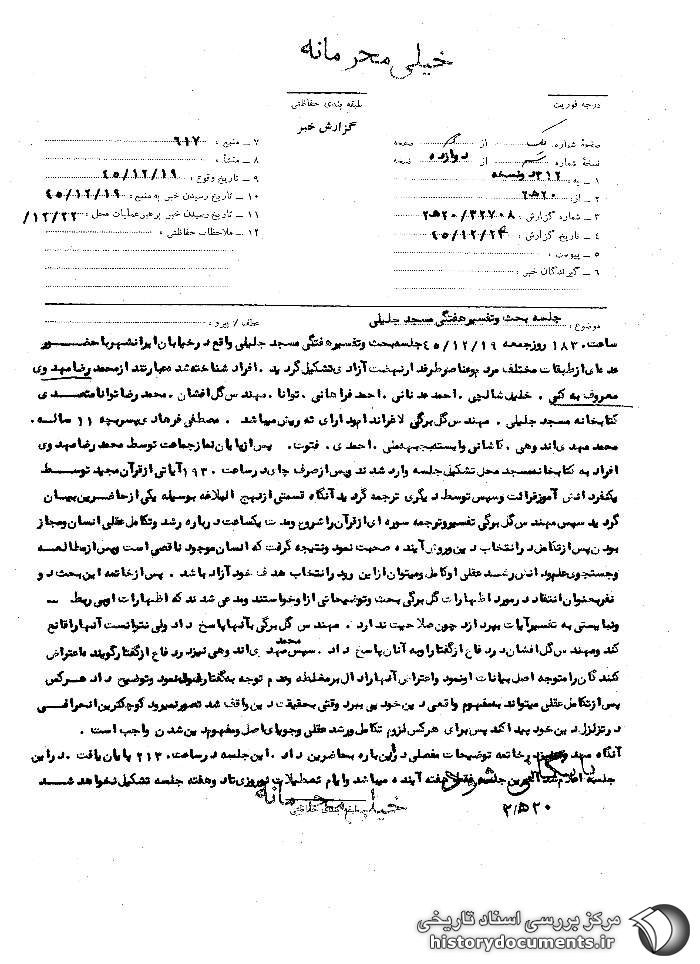 خیلی محرمانه
درجه فوریت
طبقه بندی حفاظتی
گزارش خبر
صفحه شماره یک از صفحه
نسخه شماره از دوازده نسخه
۱ ـ به : ۳۱۲ دو نسخه
۲ ـ از : ۲۰ھ۲
۳ ـ شماره گزارش : ۲۰ھ۲/۳۲۷۰۸
۴ ـ تاریخ گزارش : ۴۵/۱۲/۲۴
۵ ـ پیوست :
۶ ـ گیرندگان خبر :
۷ ـ منبع : ۶۱۷
۸ ـ منشاء :
۹ ـ تاریخ وقوع : ۴۵/۱۲/۱۹
۱۰ ـ تاریخ رسیدن خبر به منبع : ۴۵/۱۲/۱۹
۱۱ ـ تاریخ رسیدن خبر برهبر عملیات محل : /۱۲/۲۲
۱۲ ـ ملاحظات حفاظتی :
موضوع : جلسه بحث و تفسیر هفتگی مسجد جلیلی
عطف / پیرو :
ساعت ۱۸۳۰ روز جمعه ۴۵/۱۲/۱۹ جلسه بحث و تفسیر هفتگی مسجد جلیلی واقع در خیابان ایرانشهر با حضور
عده ای از طبقات مختلف مردم و عناصر طرفدار نهضت آزادی تشکیل گردید . افراد شناخته شده عبارتند از محمد رضا مهدوی
معروف به کنی . خلیل شالچی . احمد عدنانی . احمد فراهانی . توانا . مهندس گل افشان . محمد رضا توانا متصدی
کتابخانه مسجد جلیلی . مهندس گل برگی لاغر اندام و دارای ته ریش میباشد . مصطفی فرهادی پسربچه ۱۱ ساله .
محمد مهدی اند وهی . کاشانی وابسته جبهه ملی . احمدی . فتوت . پس از پایان نماز جماعت توسط محمد رضا مهدوی
افراد به کتابخانه مسجد محل تشکیل جلسه وارد شدند و پس از صرف چای در ساعت ۱۹۳۰ آیاتی از قرآن مجید توسط
یکنفر دانش آموز قرائت و سپس توسط دیگری ترجمه گردید آنگاه قسمتی از نهج البلاغه بوسیله یکی از حاضرین بیان
گردید سپس مهندس گل برگی تفسیر و ترجمه سوره ای از قرآن را شروع و مدت یکساعت درباره رشد و تکامل عقلی انسان و مجاز
بودن پس از تکامل در انتخاب دین و روش آینده صحبت نمود و نتیجه گرفت که انسان موجود ناقصی است و پس از مطالعه
و جستجوی علم و دانش رشد عقلی او کامل و میتواند از این رو در انتخاب هدف خود آزاد باشد . پس از خاتمه این بحث دو
نفر بعنوان انتقاد در مورد اظهارات گل برگی بحث و توضیحاتی از او خواستند و مدعی شدند که اظهارات او بی ربط ـ
و نبایستی به تفسیر آیات بپردازد چون صلاحیت ندارد . مهندس گل برگی به آنها پاسخ داد ولی نتوانست آنها را قانع
کند و مهندس گل افشان در دفاع از گفتار او به آنان پاسخ داد . سپس محمد مهدی اند وهی نیز در دفاع از گفتار گوینده با اعتراض
کنندگان را متوجه اصل بیانات او نمود و اعتراض آنها را دال بر مغلطه و عدم توجه به گفتار قبول نمود و توضیح داد هر کس
پس از تکامل عقلی میتواند به مفهوم واقعی دین خود پی ببرد وقتی بحقیقت دین واقف شد تصور نمیرود کوچکترین انحرافی
در تزلزل دین خود پیدا کند پس برای هر کس لزوم تکامل و رشد عقلی و جویای اصل و مفهوم دین شدن واجب است .
آنگاه مهدوی در خاتمه توضیحات مفصلی در این باره بحاضرین داد . این جلسه در ساعت ۲۱۳۰ پایان یافت . در این
جلسه اعلام شد آخرین جلسه فقط هفته آینده میباشد و ایام تعطیلات نوروزی تا دو هفته جلسه تشکیل نخواهد شد
بایگانی شود
۲۰ھ۲
طبقه بندی حفاظتی
خیلی محرمانه
مرکز بررسی اسناد تاریخی
historydocuments.ir